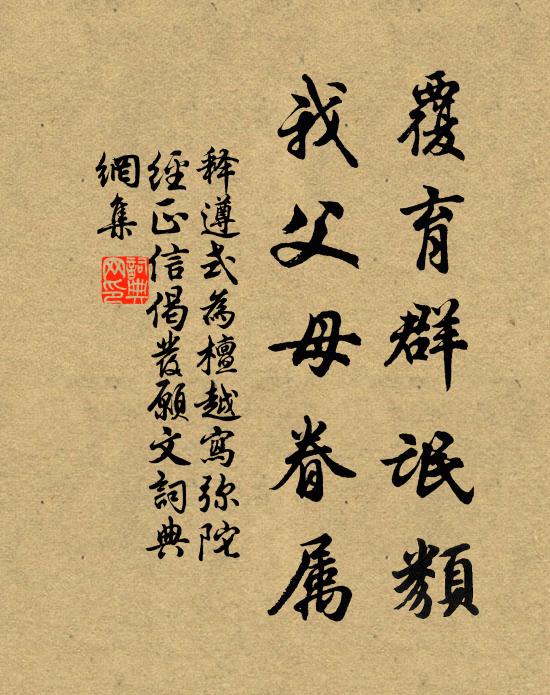 覆育群氓類
我父母眷属
释遵式為檀越寫弥陀
經正信偈發願文詞典
網集
詞典
网印